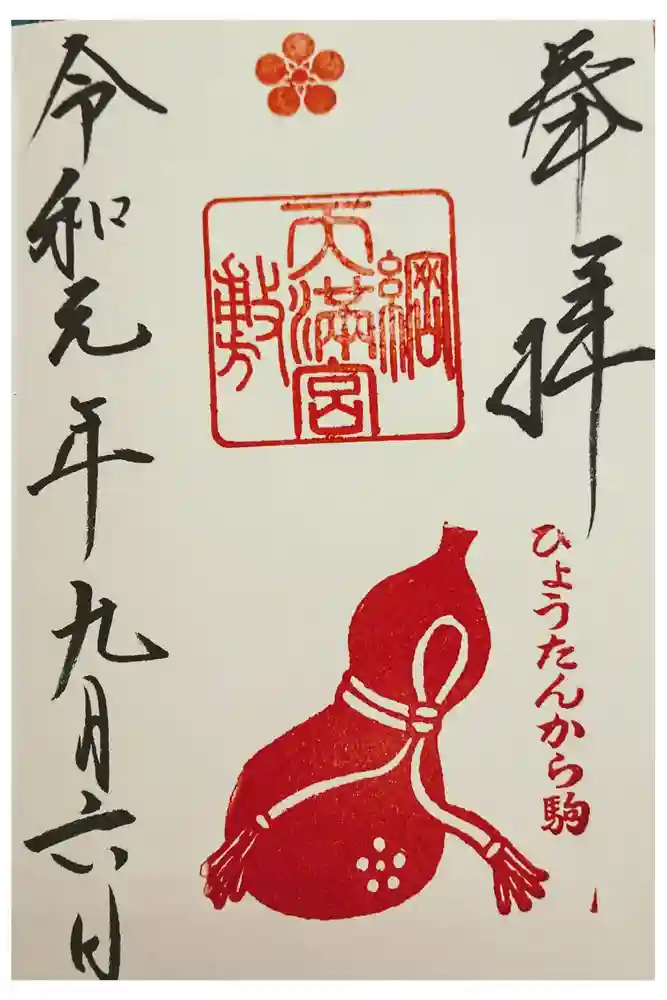 奉拝
綱
天満宮
敷
ひょうたんから駒
令和元年九月六日